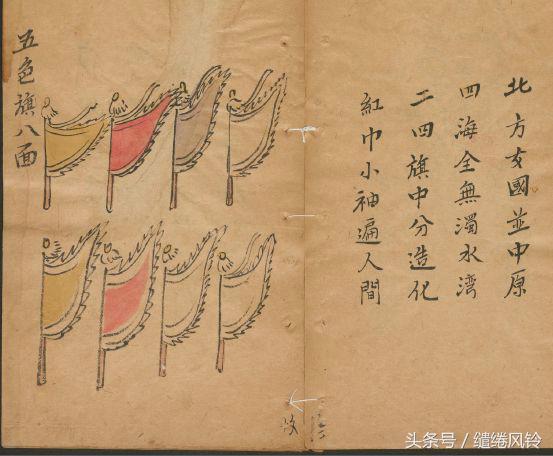 北方國並中原
四海全無濁水湾
二四旗中分造化
紅巾小袖遍人間
五色旗八面
头条号 / 缱绻风铃